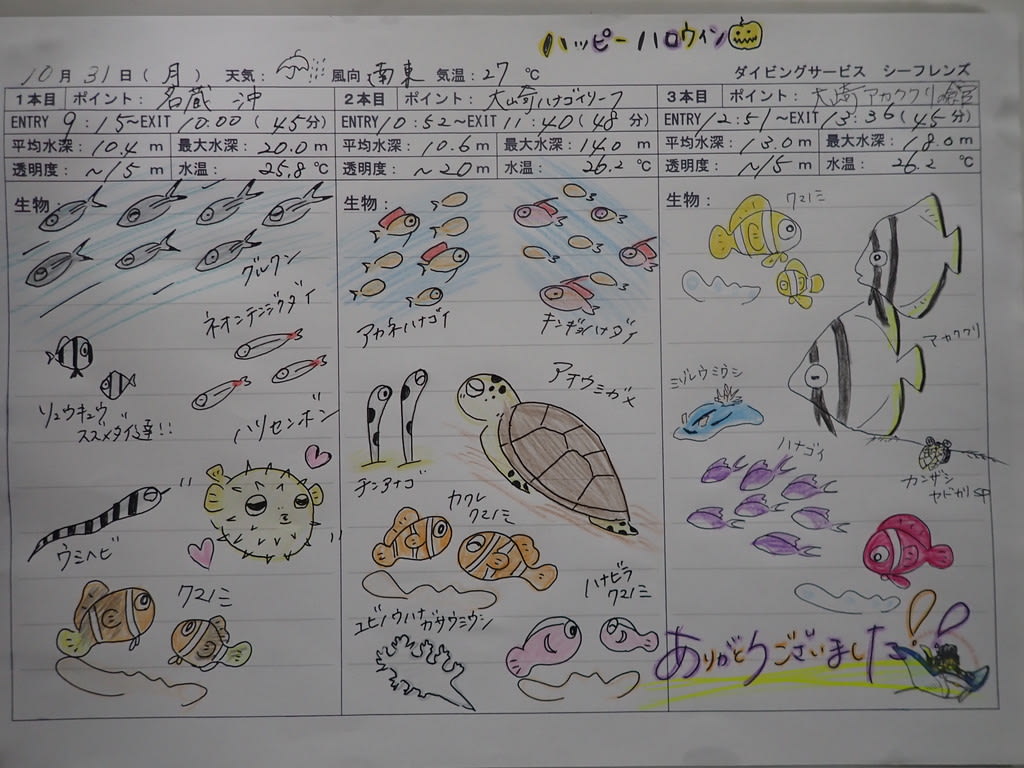 ハッピーハロウィン
10月31日(月) 天気: 風向:南東 気温:27℃ ダイビングサービス シーフレンズ
1本目 ポイント:名蔵沖
ENTRY 9:15~EXIT 10:00(45分)
平均水深:10.4m 最大水深:20.0m
透明度:~15m 水温:25.8℃
生物:
グルクン
ネオンテンジクダイ
リュウキュウスズメダイ達!!
ハリセンボン
ウミヘビ
クマノミ
2本目 ポイント:大崎ハナゴイリーフ
ENTRY 10:52~EXIT 11:40(48分)
平均水深:10.6m 最大水深:14.0m
透明度:~20m 水温:26.2℃
生物:
アカネハナゴイ
キンギョハナダイ
アオウミガメ
チンアナゴ
カクレ
クマノミ
ハナビラ
クマノミ
ユビノウハナガサウミウシ
3本目 ポイント:大崎アカククリ
ENTRY 12:51~EXIT 13:36(45分)
平均水深:13.0m 最大水深:18.0m
透明度:~15m 水温:26.2℃
生物:
クマノミ
アカククリ
ミゾレウミウシ
ハナゴイ
カンザシ
ヤドカリSP
ありがとうございました